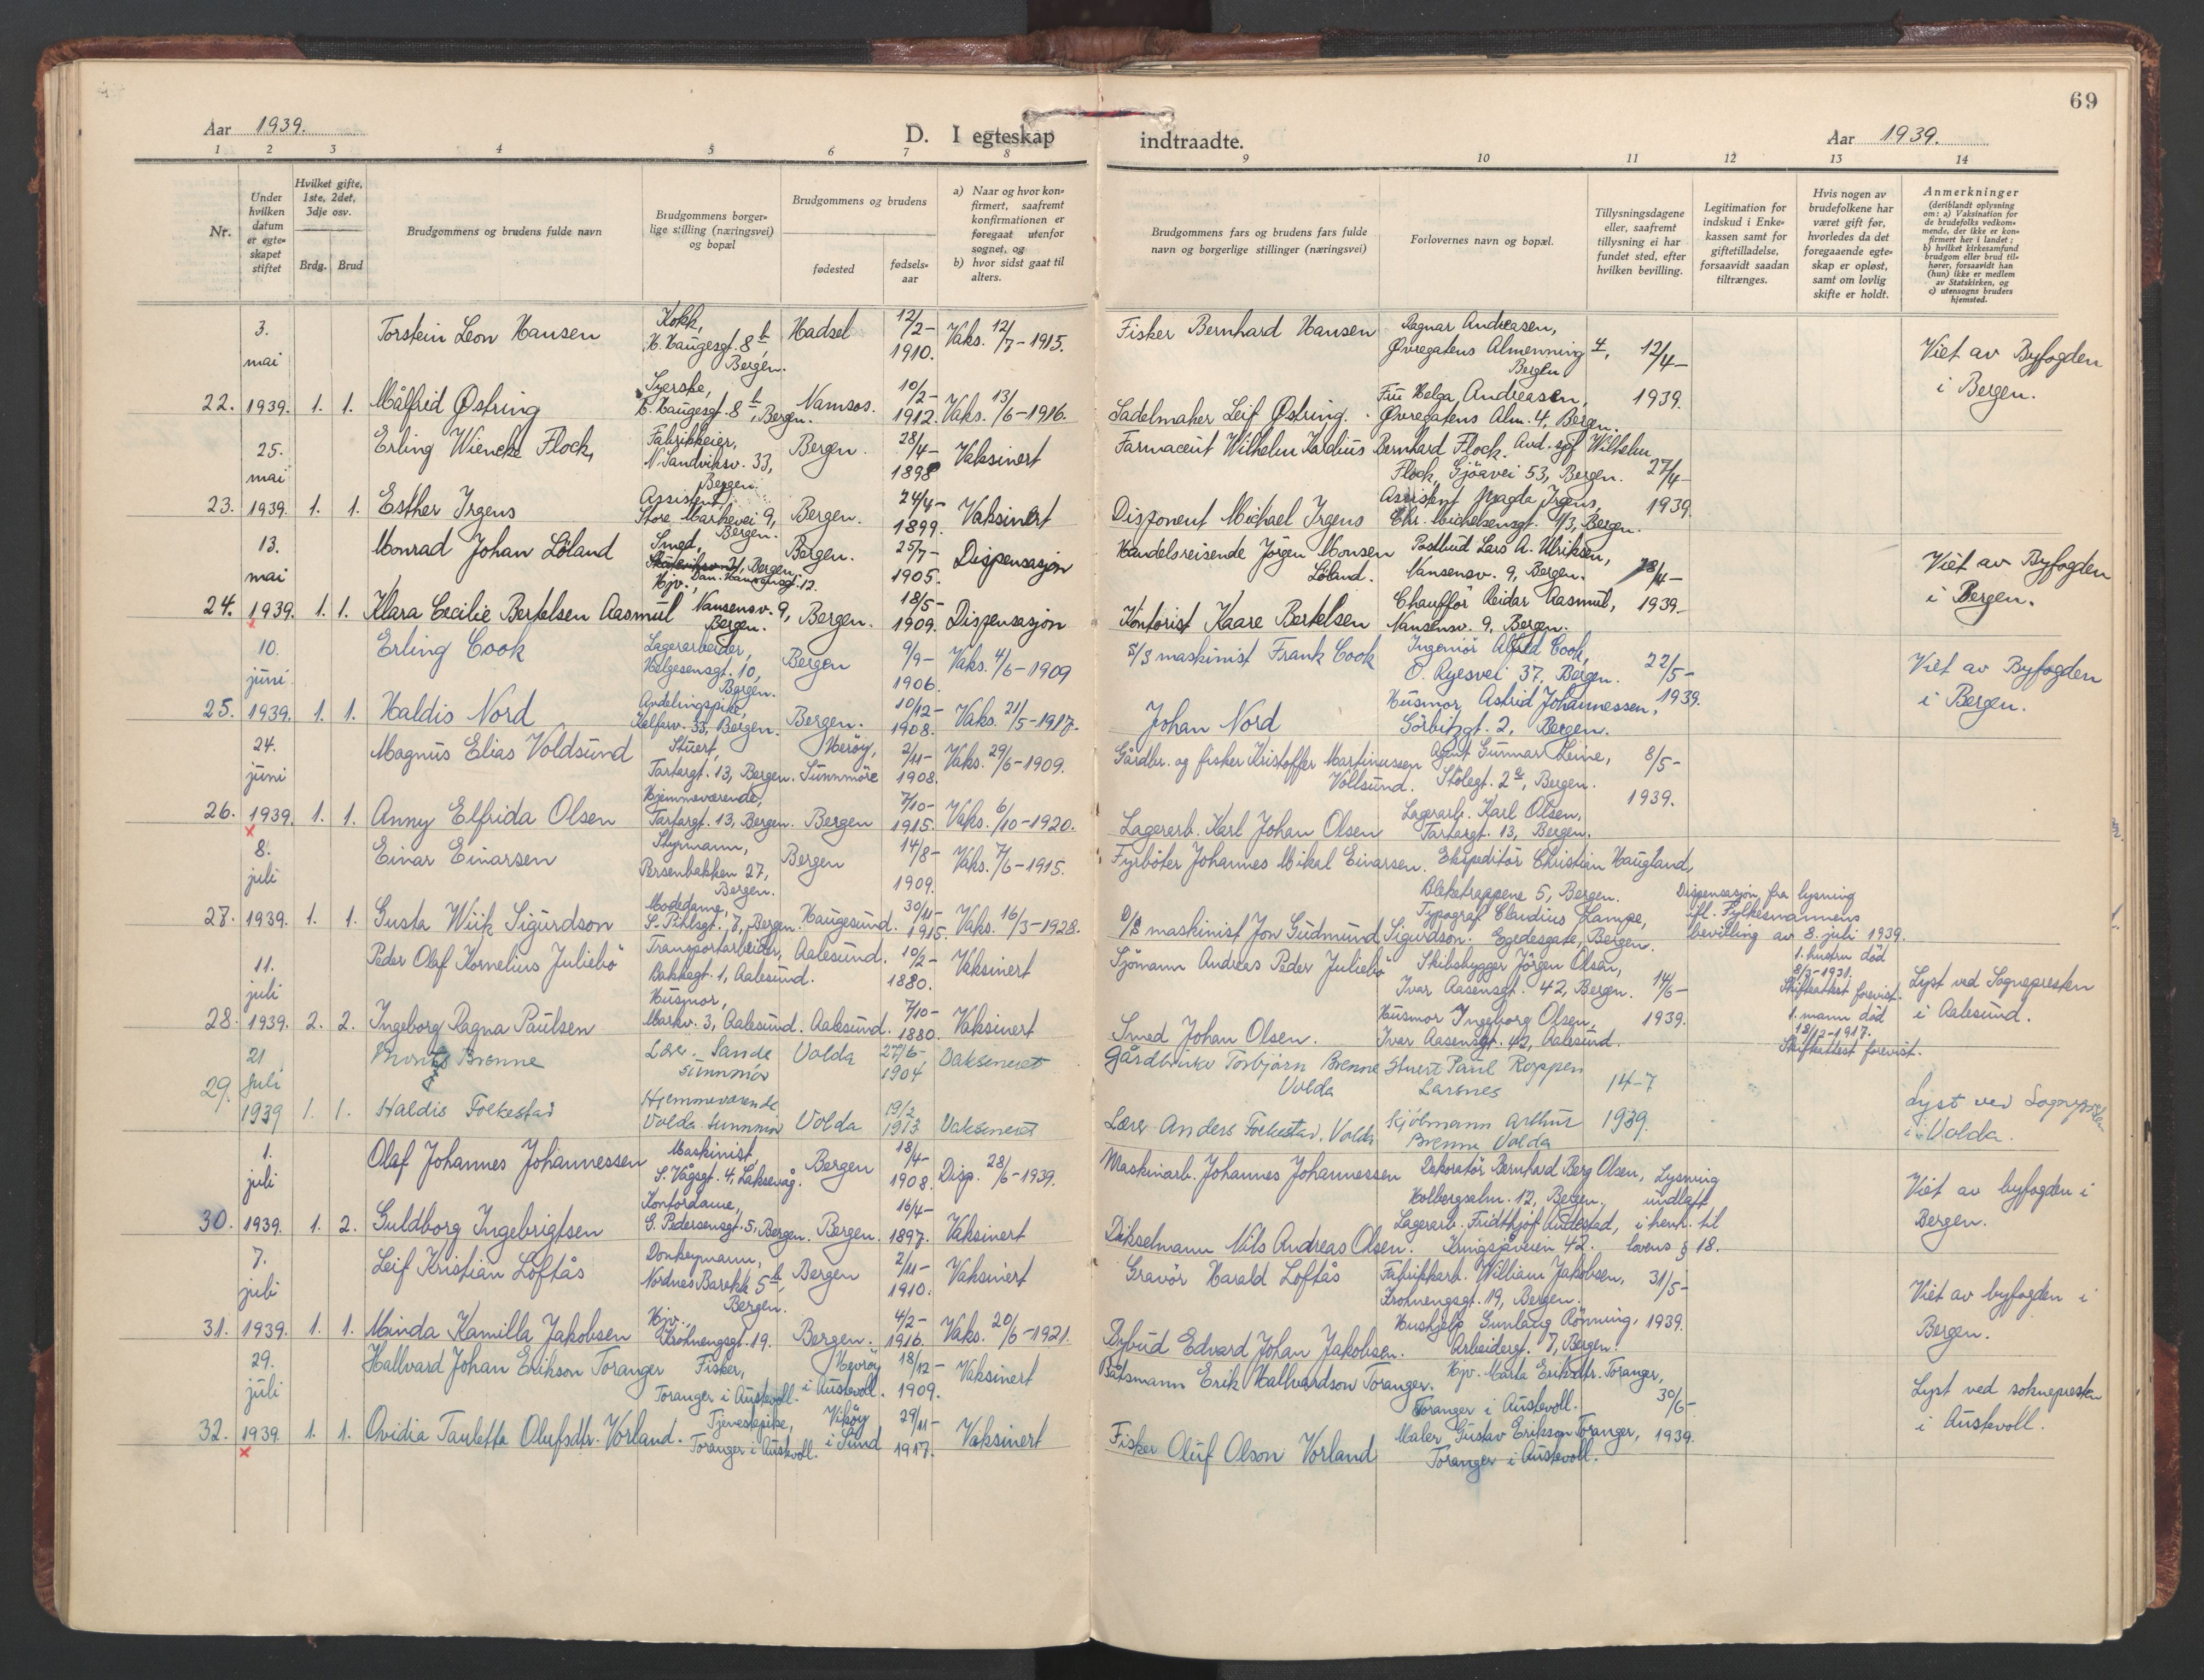 69
Aar 1939.
D. I egteskap indtraadte.
Aar 1939.
1 2 3 4 5 6 7 8 9 10 11 12 13 14
Nr.
Under hvilken datum er egteskapet stiftet
Hvilket gifte, 1ste, 2det, 3dje osv.
Brdg. Brud
Brudgommens og brudens fulde navn
Brudgommens borgerlige stilling (næringsvei) og bopæl
Brudgommens og brudens
fødested
fødselsaar
a) Naar og hvor konfirmert, saafremt konfirmationen er foregaat utenfor sognet, og
b) hvor sidst gaat til alters.
Brudgommens fars og brudens fars fulde navn og borgerlige stillinger (næringsvei)
Forlovernes navn og bopæl.
Tillysningsdagene eller, saafremt tillysning ei har fundet sted, efter hvilken bevilling.
Legitimation for indskud i Enkekassen samt for giftetilladelse, forsaavidt saadan tiltrænges.
Hvis nogen av brudefolkene har været gift før, hvorledes da det foregaaende egteskap er opløst, samt om lovlig skifte er holdt.
Anmerkninger (deriblandt oplysning om: a) Vaksination for de brudefolks vedkommende, der ikke er konfirmert her i landet; b) hvilket kirkesamfund brudgom eller brud tilhører, forsaavidt han (hun) ikke er medlem av Statskirken, og c) utensogns bruders hjemsted.
3. mai Torstein Leon Hansen Kokk, H. Haugesgt. 8 b, Bergen. Hadsel 12/2-1910. Vaks. 12/7-1915. Fisker Bernhard Hansen Ragnar Andreasen, Øvregatens Almenning 4, Bergen 12/4- Viet av Byfogden i Bergen.
22. 1939. 1. 1. Målfrid Østring Syerske, H. Haugesgt. 8 b, Bergen. Namsos. 10/2-1912. Vaks. 13/6-1916. Sadelmaker Leif Østring. Fru Helga Andreasen, Øvregatens Alm. 4, Bergen. 1939.
25. mai Erling Wiencke Flock, Fabrikkeier, N. Sandviksv. 33, Bergen. Bergen. 28/4-1898 Vaksinert Farmaceut Wilhelm Kardius Bernhard Flock. Avd. sjef Wilhelm Flock, Gjöavei 53, Bergen. 27/4-
23. 1939. 1. 1. Esther Irgens Assistent, Store Markevei 9, Bergen. Bergen. 24/4-1899. Vaksinert Disponent Michael Irgens Assistent Magda Irgens, Chr. Michelsensgt. 1/3, Bergen. 1939.
13. mai Monrad Johan Löland Smed, Bergen, Dan. Hansensgt. 12. Bergen. 25/7-1905. Dispensasjon Handelsreisende Jörgen Monsen Löland. Postbud Lars A. Ulriksen, Nansensv. 9, Bergen. 28/4- Viet av Byfogden i Bergen.
24. 1939. 1. 1. Klara Cecilie Bertelsen Aasmul Hjv. Nansensv. 9, Bergen. Bergen. 18/5-1909. Dispensasjon Kontorist Kaare Bertelsen Chaufför Reidar Aasmul, Nansensv. 9, Bergen. 1939.
10. juni Erling Cook Lagerarbeider, Helgesensgt. 10, Bergen. Bergen 9/9-1906. Vaks. 4/6-1909 S/S maskinist Frank Cook Ingeniör Alfred Cook, O. Ryesvei 37, Bergen. 22/5- Viet av Byfogden i Bergen.
25. 1939. 1. 1. Haldis Nord Avdelingspike, Kalfarv. 33, Bergen. Bergen. 10/12-1908. Vaks. 21/5-1917. Johan Nord Husmor Astrid Johannessen, Görbitzgt. 2, Bergen. 1939.
24. juni Magnus Elias Voldsund Stuert, Tartargt. 13, Bergen. Heröy, Sunnmöre 2/11-1908. Vaks. 29/6-1909. Gårdbr. og fisker Kristoffer Martinussen Vollsund. Agent Gunnar Leine, Stölegt. 2 a, Bergen. 8/5-
26. 1939. 1. 1. Anny Elfrida Olsen Hjemmeværende, Tartargt. 13, Bergen. Bergen 7/10-1915. Vaks. 6/10-1920. Lagerarb. Karl Johan Olsen Lagerarb. Karl Olsen, Tartargt. 13, Bergen. 1939.
8. juli Einar Einarsen Styrmann, Persenbakken 27, Bergen. Bergen 14/8-1909. Vaks. 7/6-1915. Fyrböter Johannes Mikal Einarsen. Ekspeditör Christian Haugland, Bleketrappene 5, Bergen. Dispensasjon fra lysning ifl. Fylkesmannens bevilling av 8. juli 1939.
27. 1939. 1. 1. Gusta Wiik Sigurdson Modedame, S. Pihlsgt. 8, Bergen. Haugesund. 30/11-1915. Vaks. 16/3-1928. D/S maskinist Jon Gudmund Sigurdson. Typograf Claudius Lampe, Egedesgate, Bergen.
11. juli Peder Olaf Kornelius Juliebö Transportarbeider, Bakkegt. 1, Aalesund. Aalesund. 10/2-1880. Vaksinert Sjömann Andreas Peder Juliebö Skibsbygger Jörgen Olsen, Ivar Aasensgt. 42, Bergen. 14/6- 1. hustru död 8/3-1931. Skifteattest forevist. Lyst ved Sognepresten i Aalesund.
28. 1939. 2. 2. Ingeborg Ragna Paulsen Husmor, Markv. 3, Aalesund. Aalesund. 7/10-1880. Vaksinert Smed Johan Olsen. Husmor Ingeborg Olsen, Ivar Aasensgt. 42, Aalesund. 1939. 1. mann död 18/12-1917. Skifteattest forevist.
21 Juli Brenne Lær. Sande sunnmör Volda 27/6-1904 Vaksineret Gårdbruker Torbjörn Brenne Volda Stuert Paul Roppen Larsnes 14-7
29. 1939 1. 1. Haldis Folkestad Hjemmeværende Volda sunnmör Volda 19/2 1913 Vaksineret Lærer Anders Folkestad, Volda Sjömann Arthur Brenne Volda 1939. Lyst ved Sognepresten i Volda.
1. juli Olaf Johannes Johannessen Maskinist, S. Vågsgt. 4, Laksevåg. Bergen 18/4-1908. Disp. 28/6-1939. Maskinarb. Johannes Johannessen Dekoratör Bernhard Berg Olsen, Holbergsalm. 12, Bergen. Lysning undlatt i henh. til lovens § 18. Viet av byfogden i Bergen.
30. 1939. 1. 2. Guldborg Ingebrigtsen Kontordame, G. Pedersensgt. 5, Bergen. Bergen. 16/4-1897. Vaksinert Dikselmann Nils Andreas Olsen. Lagerarb. Fridthjof Audestad, Kringsjåveien 42.
7. juli Leif Kristian Loftås Donkeymann, Nordnes Barakk 5 b, Bergen. Bergen 2/11-1910. Vaksinert Gravör Harald Loftås Fabrikkarb. William Jakobsen, Krohnengsgt. 19, Bergen. 31/5- Viet av byfogden i Bergen.
31. 1939. 1. 1. Minda Kamilla Jakobsen Hjv., Krohnengsgt. 19. Bergen. 4/2-1916. Vaks. 20/6-1921. Bybud Edvard Johan Jakobsen. Hushjelp Gunlaug Rönning, Arbeidergt. 7, Bergen. 1939.
29. juli Hallvard Johan Erikson Toranger Fisker, Toranger i Austevoll. Hevröy i Austevoll. 18/12-1909. Vaksinert Båtsmann Erik Hallvardson Toranger. Hjv. Marta Eriksdtr. Toranger, Toranger i Austevoll. 30/6- Lyst ved soknepresten i Austevoll.
32. 1939. 1. 1. Ovidia Tauletta Olufsdtr. Vorland. Tjenestepike, Toranger i Austevoll. Viköy i Sund 29/11-1917. Vaksinert Fisker Oluf Olson Vorland Maler Gustav Erikson Toranger, Toranger i Austevoll. 1939.